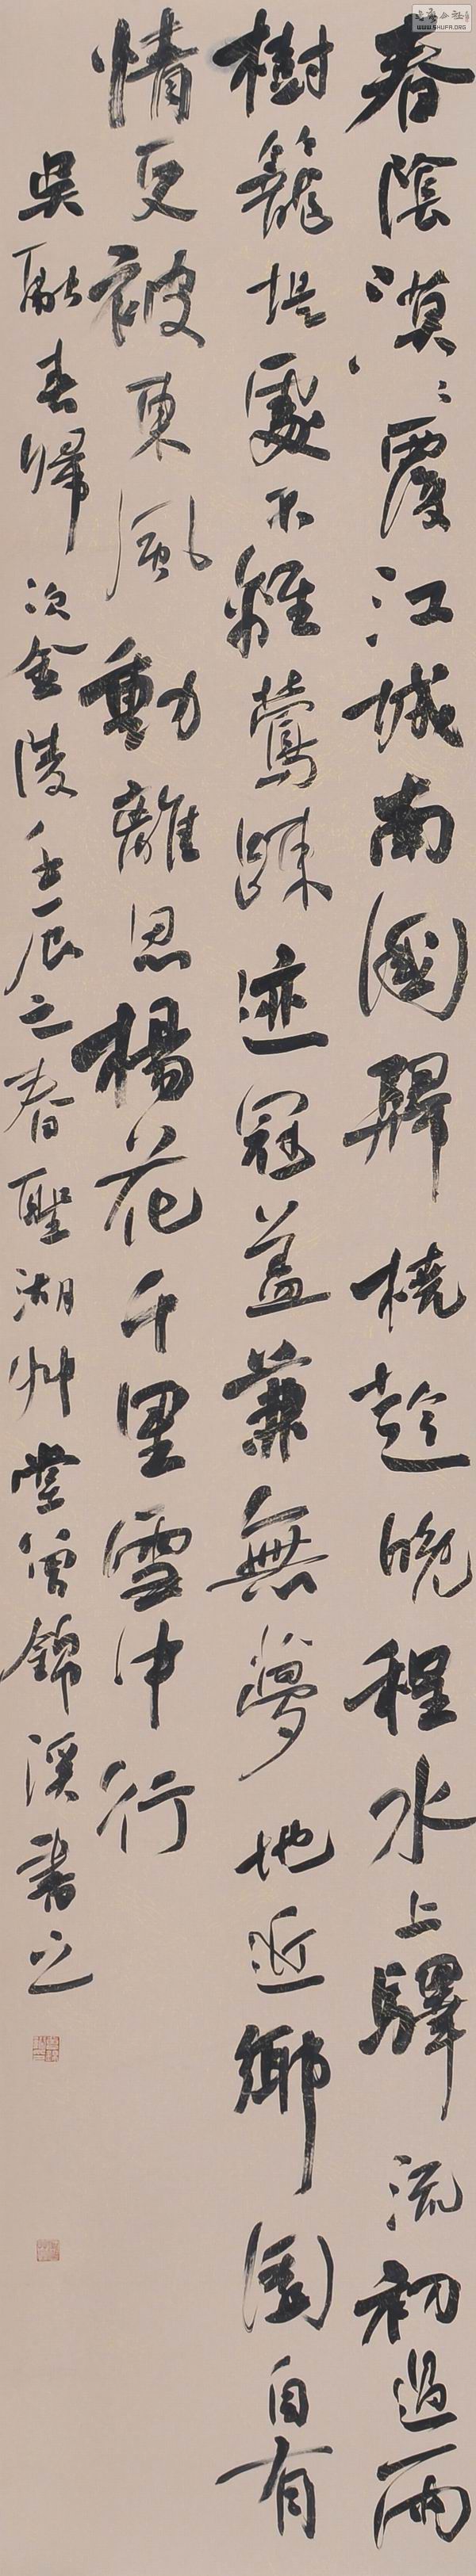 春陰漠〻覆江城南國歸橈趁晚程水上驛流初過雨
樹籠堤處不離鶯跡迹冠蓋兼無夢地近鄉園自有
情更被東風動離思楊花千里雪中行
吳融春歸次金陵壬辰之春聖湖艸堂曾錦溪書之
WWW.SHUFA.ORG